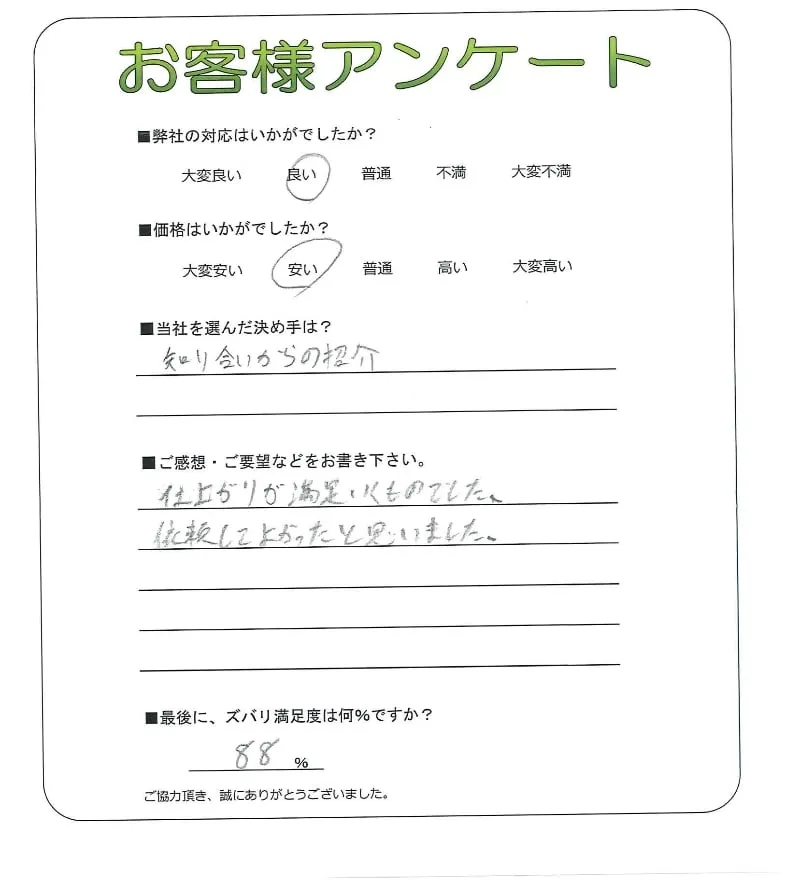 お客様アンケート
■弊社の対応はいかがでしたか？
大変良い 良い 普通 不満 大変不満
■価格はいかがでしたか？
大変安い 安い 普通 高い 大変高い
■当社を選んだ決め手は？
知り合いからの紹介
■ご感想・ご要望などをお書き下さい。
仕上がりが満足いくものでした。
依頼してよかったと思いました。
■最後に、ズバリ満足度は何%ですか？
88 %
ご協力頂き、誠にありがとうございました。